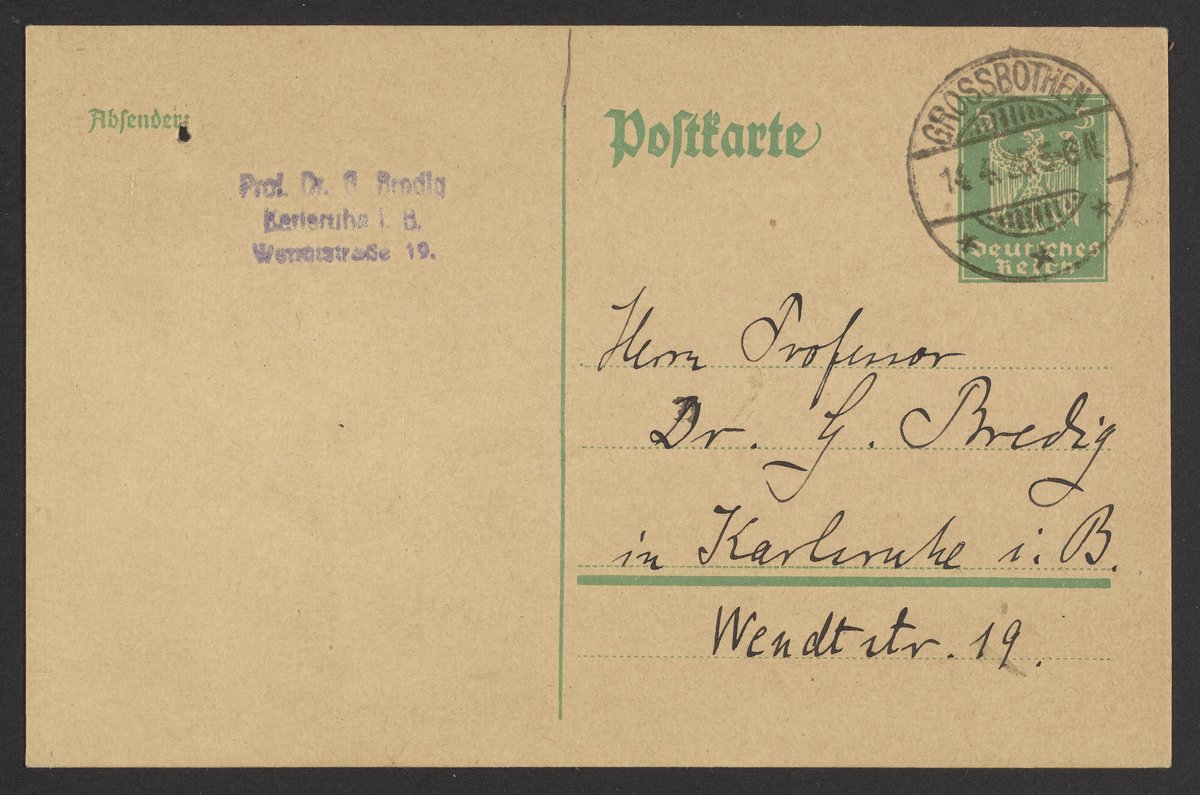 Absender:
Prof. Dr. G. Bredig
Karlsruhe i. B.
19.
Postkarte
GROSSBOTHEN
14.4. 5-6 N
5
Deutsches
Reich
Herrn Professor
Dr. G. Bredig
in Karlsruhe i. B.
Wendtstr. 19.